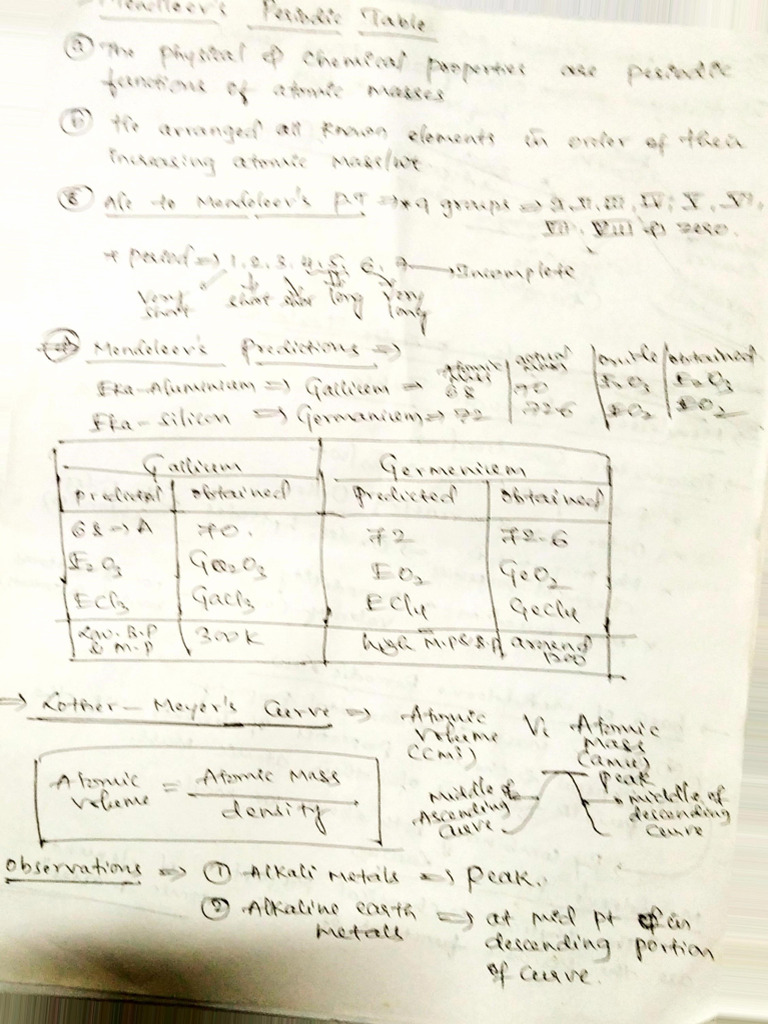 Mendleev's Periodic Table
(a) The physical & chemical properties are periodic
functions of atomic masses
(b) He arranged all known elements in order of their
increasing atomic mass/wt.
A/c to Mendeleev's P.T => * 9 groups => I, II, III, IV, V, VI,
VII, VIII & zero.
* period => 1, 2, 3, 4, 5, 6, 7 → Incomplete
very short short short long very long
Mendeleev's Predictions =>
Atomic Mass actual Mass oxide obtained
Eka-Aluminium => Gallium => 68 70 E2O3 E2O3
Eka-Silicon => Germanium => 72 72.6 EO2 EO2
Gallium Germenium
predicted obtained predicted obtained
68 → A 70. 72 72.6
E2O3 Ga2O3 EO2 GeO2
ECl3 GaCl3 ECl4 GeCl4
Low. B.P & M.P 300K high M.P & B.P around 1200
=> Lother-Meyer's Curve => Atomic Volume (cm3) Vs Atomic Mass (amu)
peak
Middle of Ascending curve
middle of descending curve
Atomic Volume = Atomic Mass / density
Observations => (1) Alkali Metals => peak.
(2) Alkaline earth Metals => at mid pt of in
descending portion
of curve.